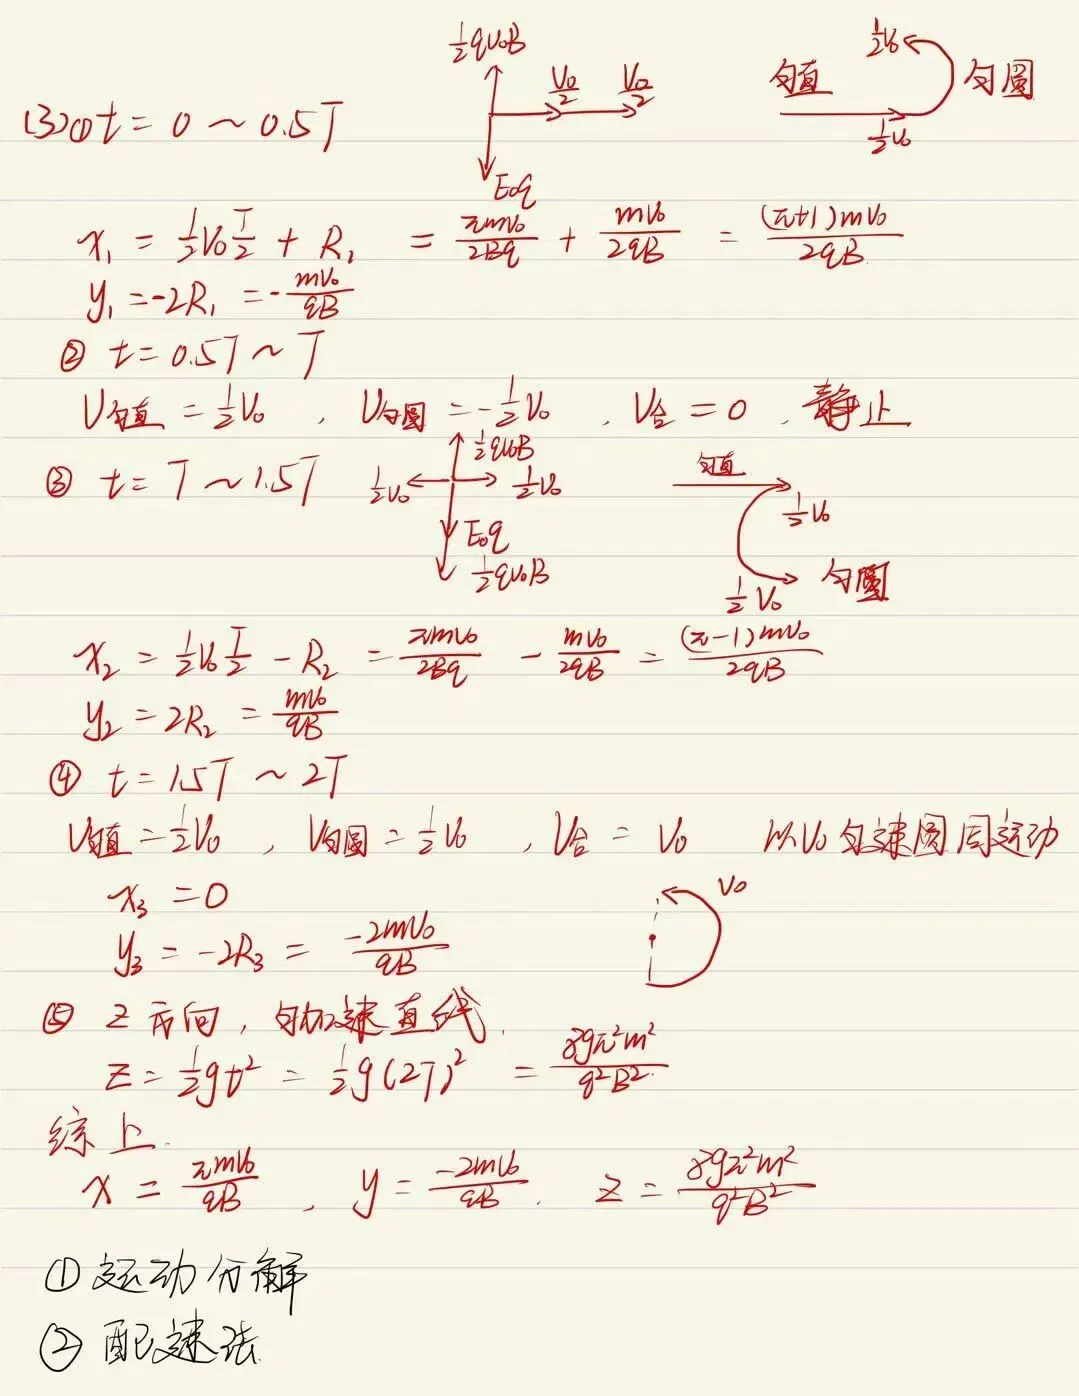 ½qv₀B
v₀/2 v₀/2
½v₀
匀直 匀圆
(3)① t = 0 ~ 0.5T
½v₀
E₀q
x₁ = ½v₀ T/2 + R₁ = πmv₀/2Bq + mv₀/2qB = (π+1)mv₀/2qB
y₁ = -2R₁ = -mv₀/qB
② t = 0.5T ~ T
v匀直 = ½v₀ , v匀圆 = -½v₀ , v合 = 0 , 静止
½qv₀B
③ t = T ~ 1.5T ½v₀ ½v₀ 匀直
½v₀
E₀q
½qv₀B ½v₀ 匀圆
x₂ = ½v₀ T/2 - R₂ = πmv₀/2Bq - mv₀/2qB = (π-1)mv₀/2qB
y₂ = 2R₂ = mv₀/qB
④ t = 1.5T ~ 2T
v匀直 = ½v₀ , v匀圆 = ½v₀ , v合 = v₀ 以v₀匀速圆周运动
x₃ = 0 v₀
y₃ = -2R₃ = -2mv₀/qB
⑤ z方向, 匀加速直线.
z = ½gt² = ½g(2T)² = 8gπ²m²/q²B²
综上.
x = πmv₀/qB , y = -2mv₀/qB . z = 8gπ²m²/q²B²
① 运动分解
② 配速法